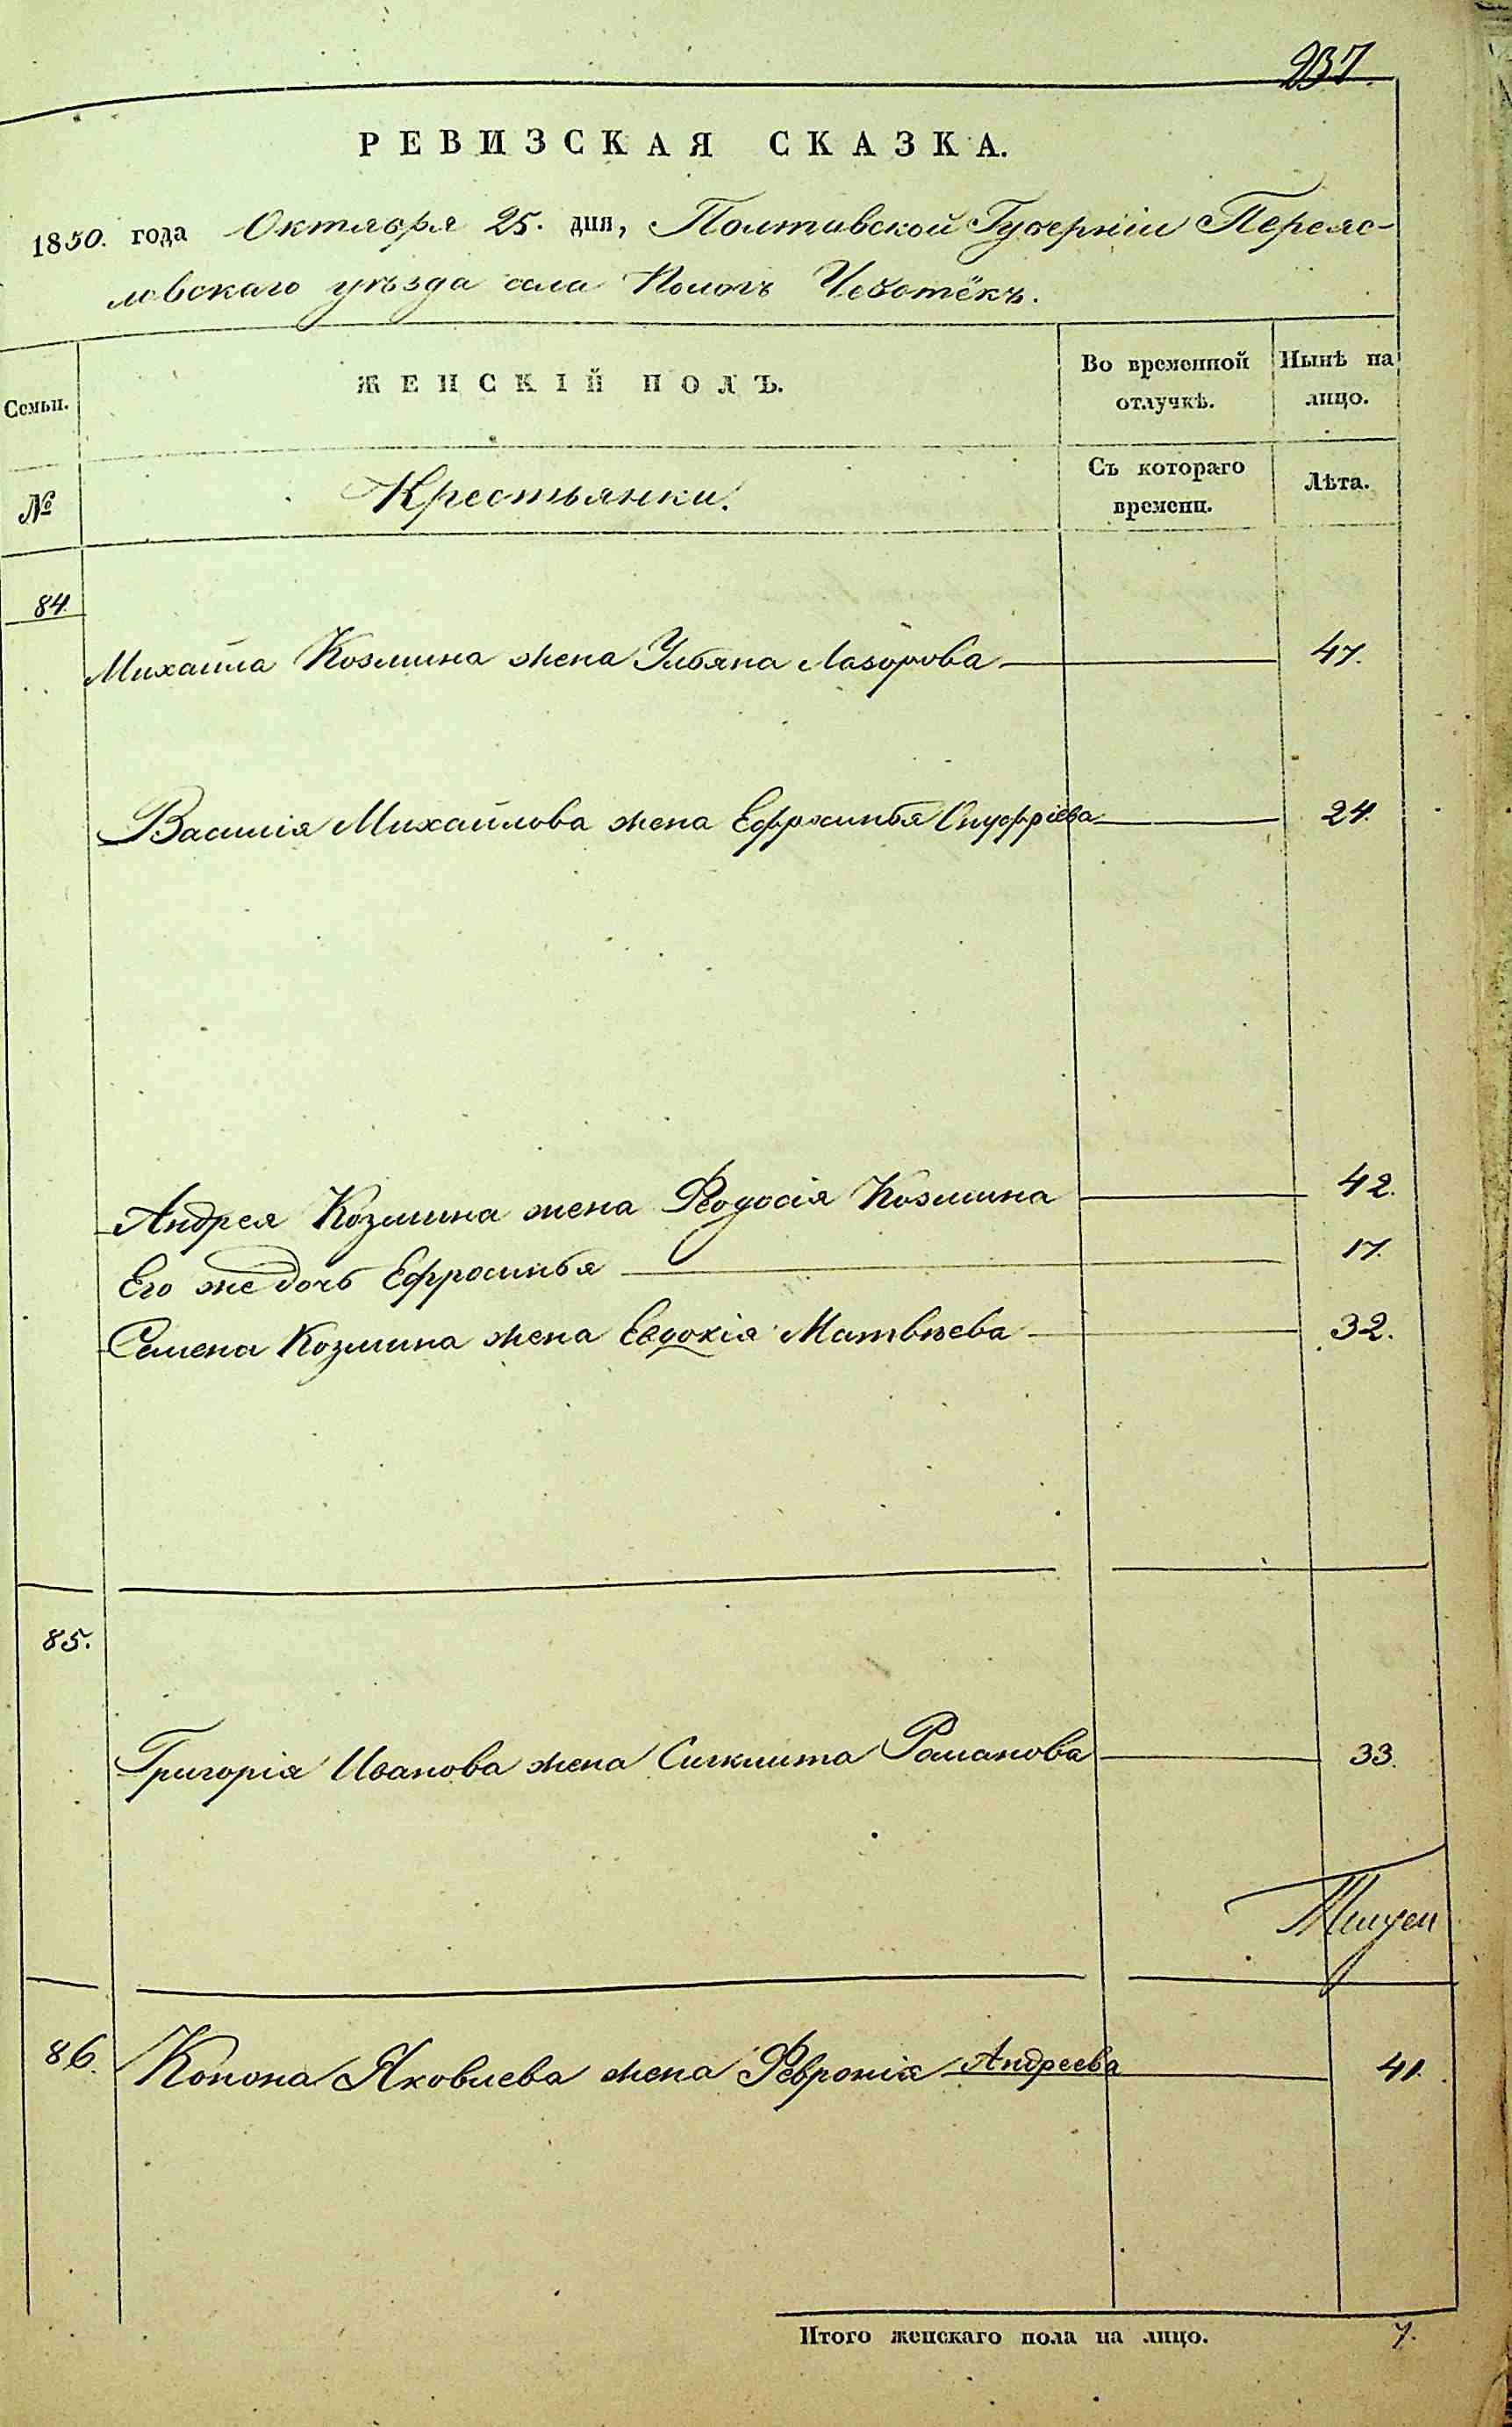 237.
РЕВИЗСКАЯ СКАЗКА.
1850. года Октября 25. дня, Полтавской Губерніи Переяс-
лавскаго уѣзда села Помокъ Чеботёкъ.
Семьи.
ЖЕНСКІЙ ПОЛЪ.
Во временной отлучкѣ.
Нынѣ на лицо.
№
Крестьянки.
Съ котораго времени.
Лѣта.
84.
Михайла Козмина жена Ульяна Лазорова 47.
Василія Михайлова жена Ефросинья Онуфріева 24.
Андрея Козмина жена Ѳеодосія Козмина 42.
Его же дочь Ефросинья 17.
Семена Козмина жена Евдокія Матвѣева 32.
85.
Григорія Иванова жена Сигклита Романова 33.
86. Конона Яковлева жена Февронія Андреева 41.
Итого женскаго пола на лицо. 7.